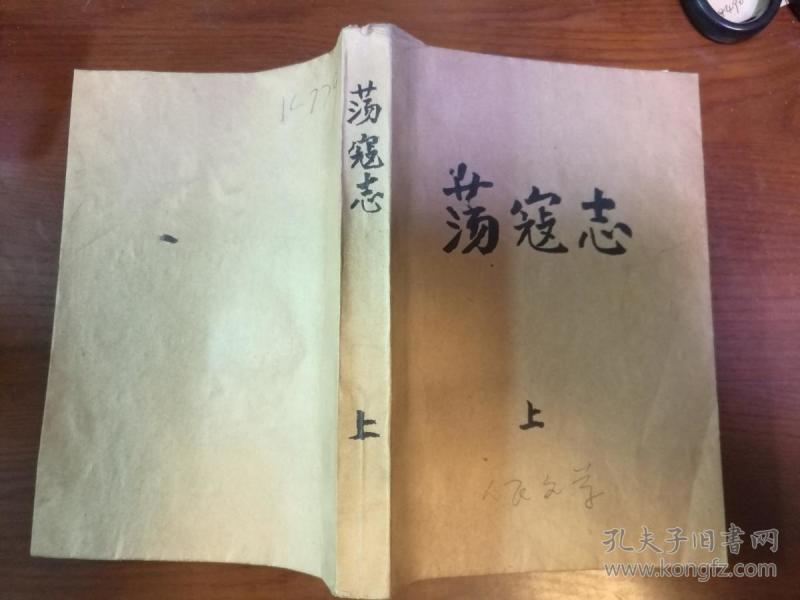 荡寇志
上
荡寇志
上
人民文学
孔夫子旧书网
www.kongfz.com